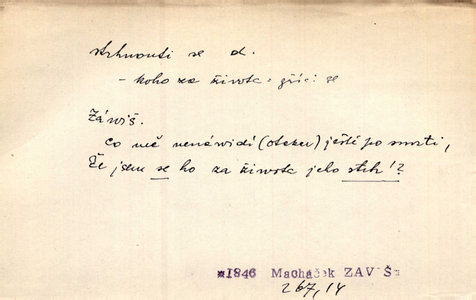 strhnouti se d.
- koho za života : příčí se
Záviš.
Co mě nenávidí (otec) ještě po smrti,
Že jsem se ho za života jelo strh'?
*1846 Macháček ZAVIŠ
267,14